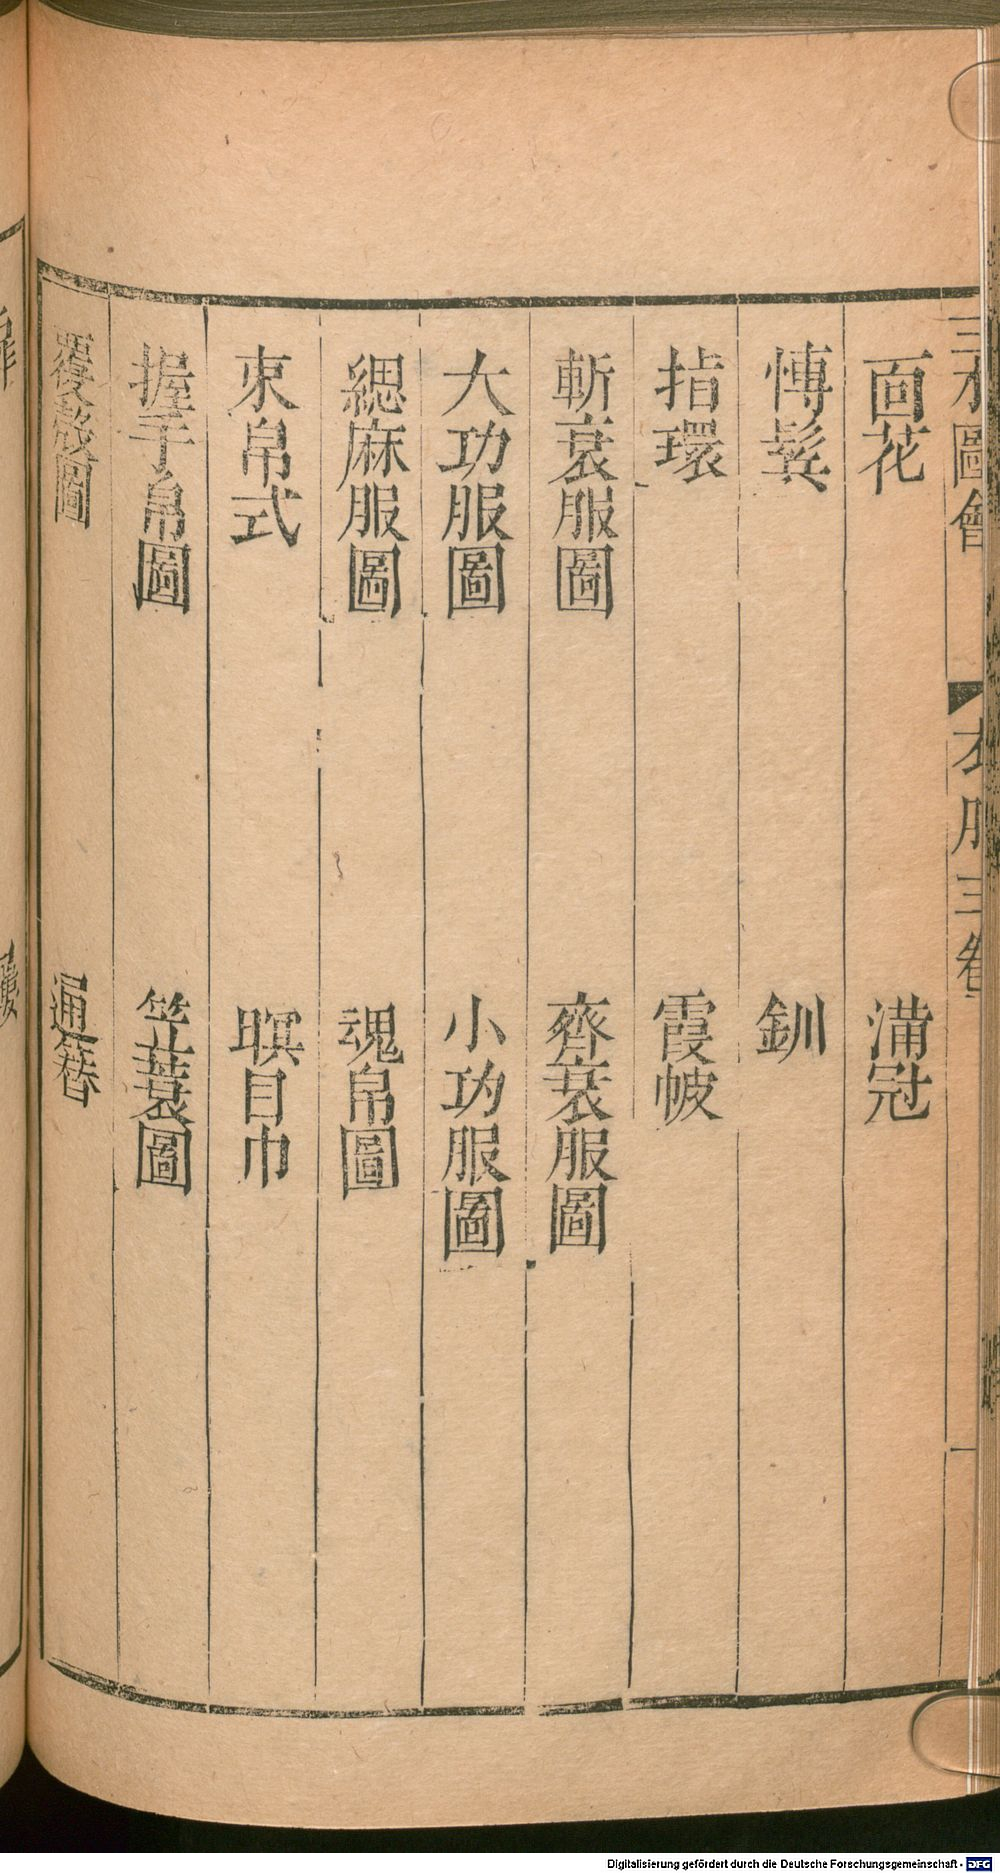 三才圖會 衣服三卷 一
面花 滿冠
慱鬂 釧
指環 霞帔
斬衰服圖 齊衰服圖
大功服圖 小功服圖
緦麻服圖 魂帛圖
束帛式 瞑目巾
握手帛圖 笠蓑圖
覆殼圖 通簪
Digitalisierung gefördert durch die Deutsche Forschungsgemeinschaft - DFG